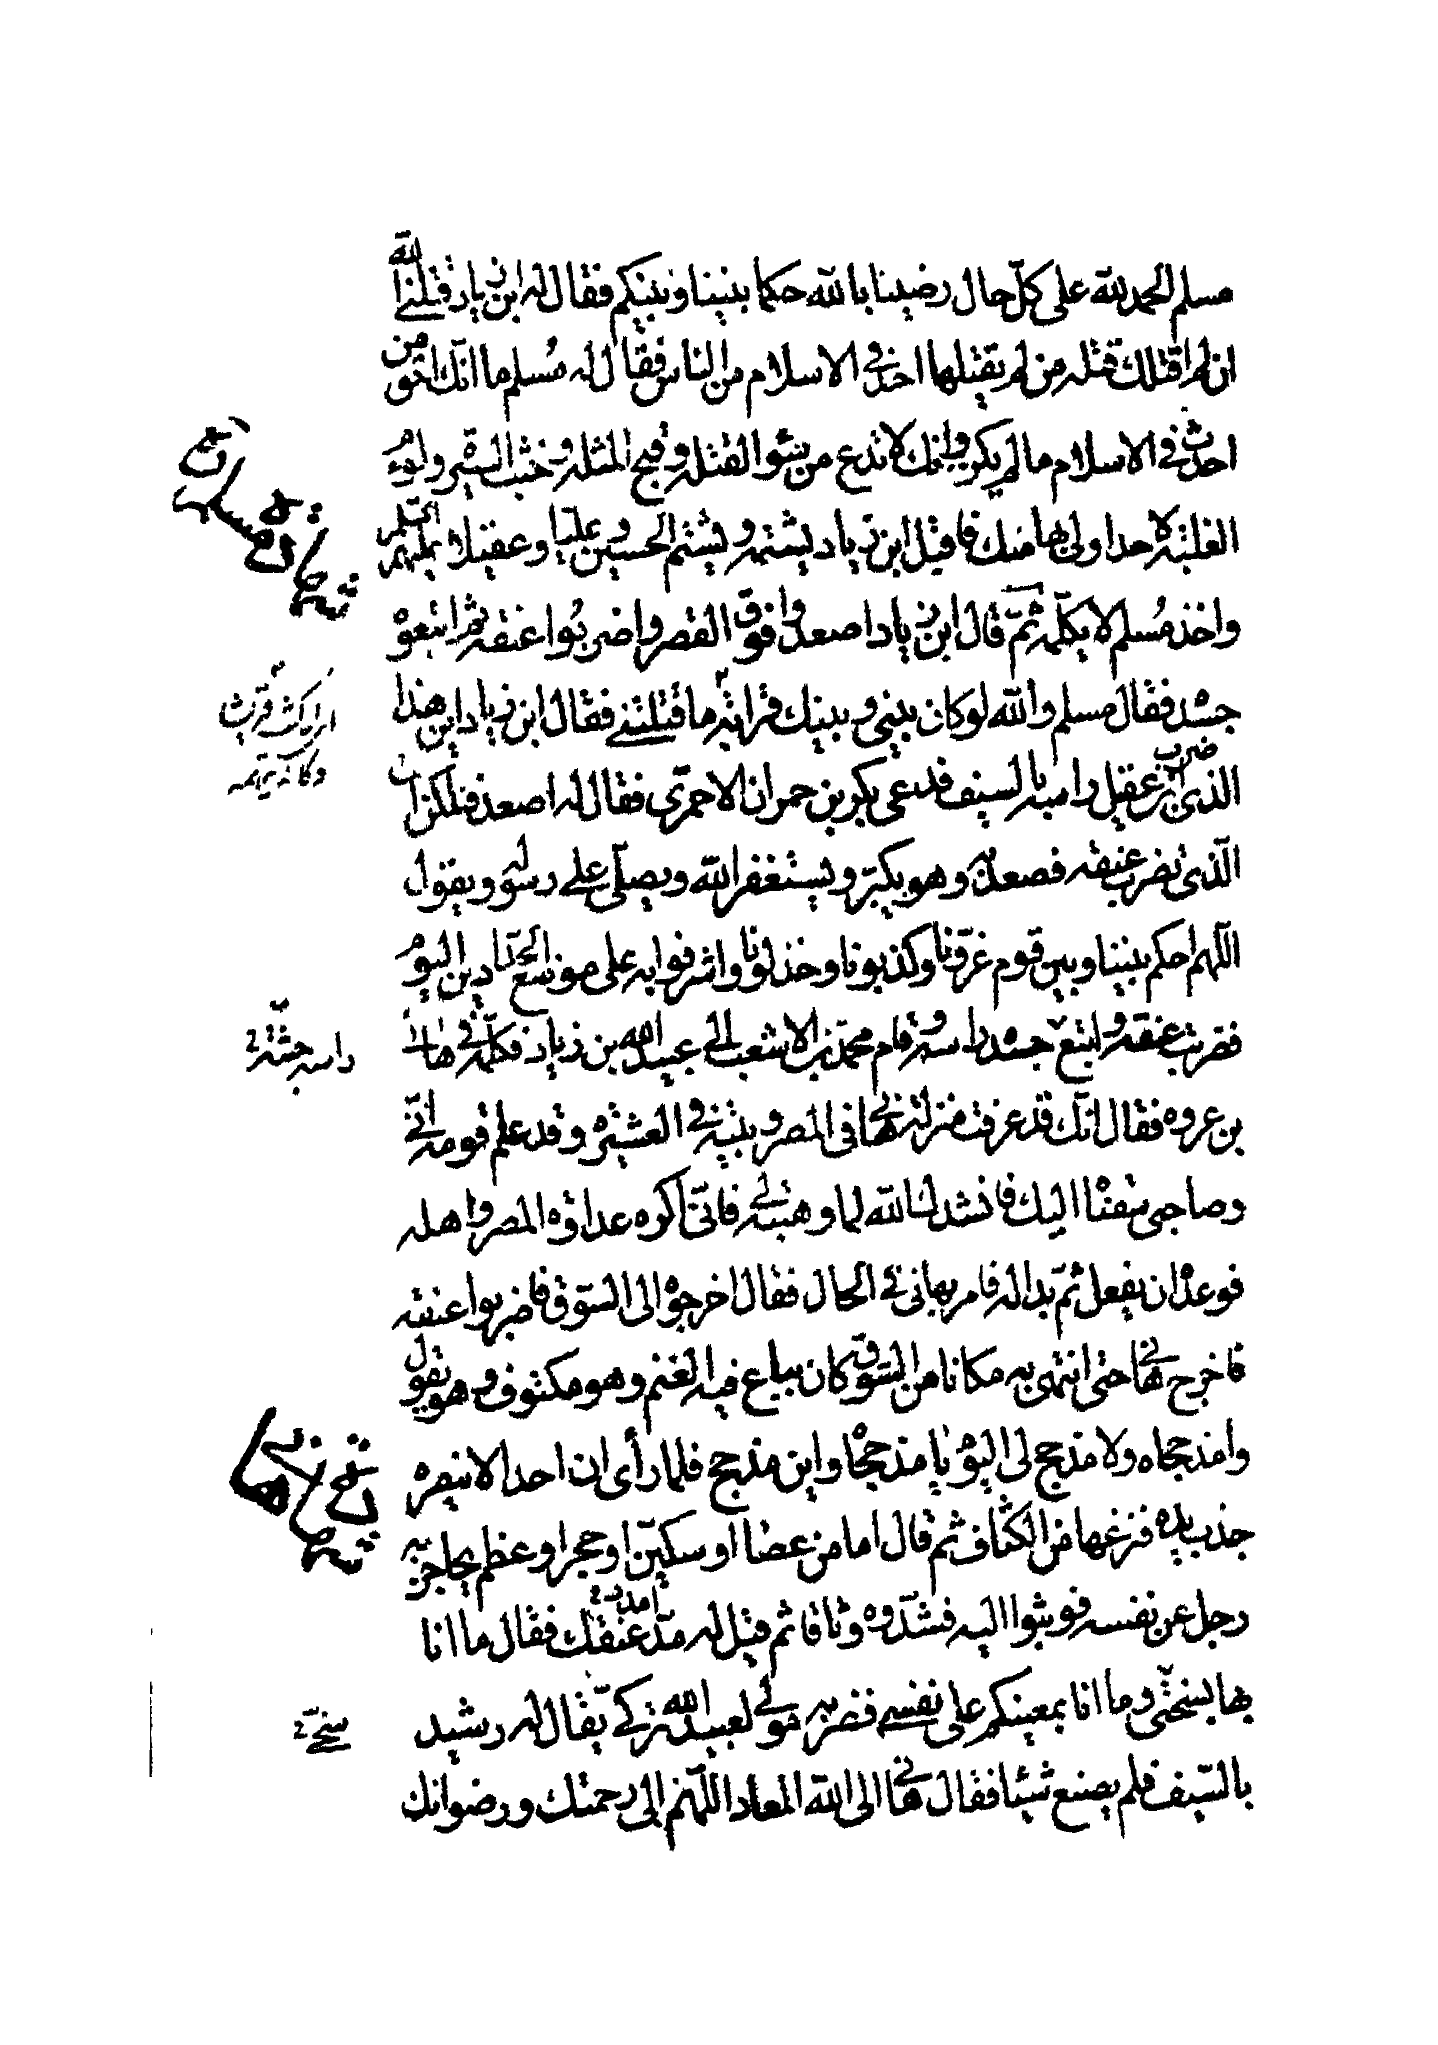 مسلم الحمد لله على كلّ حال رضينا بالله حكما بيننا وبينكم فقال له ابن زياد قتلني الله
ان لم اقتلك قتله من لم يقتلها احد في الاسلام من الناس فقال له مسلم ما انك احق من
احدث في الاسلام ما لم يكن وانك لا تدع من سوء القتله وقبح المثله وخبث السيره ولوم
الغلبة لاحد اولى بها منك فاقبل ابن زياد يشتمه ويشتم الحسين وعليا وعقيلا عليهم السلام
واخذ مسلم لا يكلّمه ثمّ قال ابن زياد اصعدوا فوق القصر واضربوا عنقه ثم اتبعوه
جسده فقال مسلم والله لو كان بيني وبينك قرابة ما قتلتني فقال ابن زياد اين هذا
الذي ضرب ابن عقيل رأسه بالسيف فدعى بكر بن حمران الاحمري فقال له اصعد فلتكن انت
الّذي تضرب عنقه فصعد به وهو يكبّر ويستغفر الله ويصلّى على رسوله ويقول
اللّهم احكم بيننا وبين قوم غرّونا وكذبونا وخذلونا واشرفوا به على موضع الحذّائين اليوم
فضربت عنقه واتبع جسده راسه وقام محمّد بن الاشعب الى عبيد الله بن زياد فكلّمه في هاني
بن عروه فقال انّك قد عرفت منزلة هاني في المصر وبيته في العشيره وقد علم قومه انّي
وصاحبي سقناه اليك فانشدك الله لما وهبته لي فانّي اكره عداوة المصر واهله
فوعده ان يفعل ثمّ بدا له فامر بهاني في الحال فقال اخرجوه الى السّوق فاضربوا عنقه
فاخرج هاني حتى انتهى به مكانا من السّوق كان يباع فيه الغنم وهو مكتوف وهو يقول
وامذحجاه ولا مذحج لي اليوم يا مذحجاه واين مذحج فلما رأى ان احدا لا ينصره
جذب يده فنزعها من الكتاف ثم قال اما من عصا او سكّين او حجر او عظم يحاجز به
رجل عن نفسه فوثبوا اليه فشدّوه وثاقا ثم قيل له مدّ عنقك فقال ما انا
بها بسخيّ وما انا بمعينكم على نفسي فضربه مولى لعبيد الله تركي يقال له رشيد
بالسّيف فلم يصنع شيئا فقال هاني الى الله المعاد اللّهم الى رحمتك ورضوانك